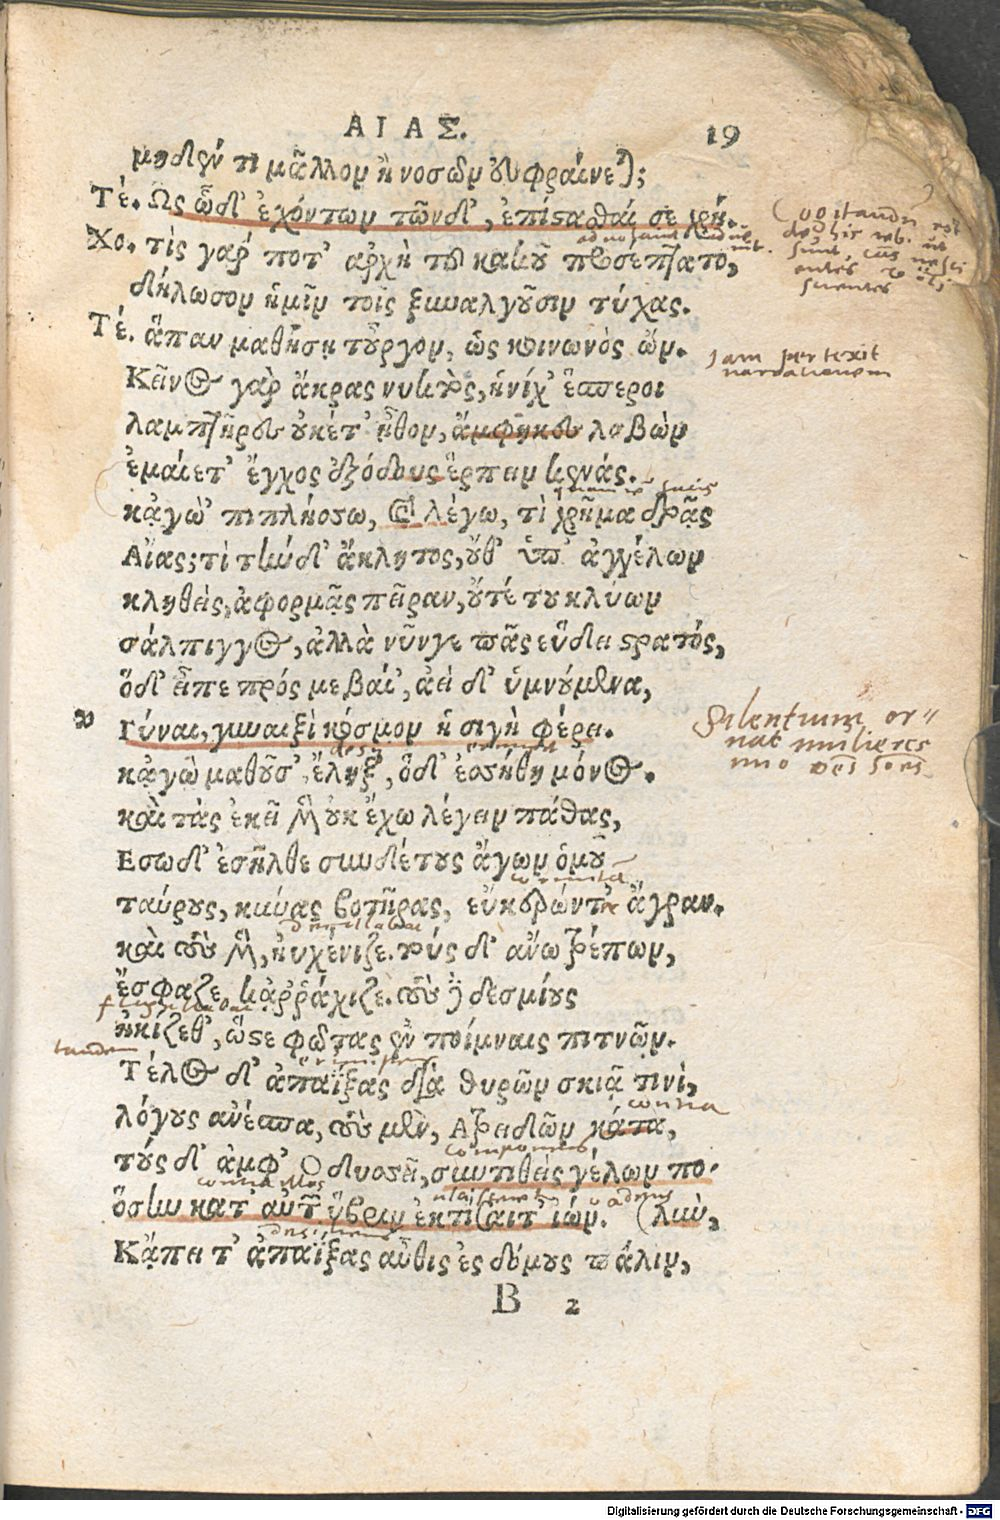 ΑΙΑΣ. 19
μηδέν τι μᾶλλον ἢ νοσῶν εὐφραίνεται;
Τέ. Ως ὧδ' ἐχόντων τῶνδ', ἐπίστασθαί σε χρή.
Χο. τίς γαρ ποτ' αρχὴ τοῦ κακοῦ προσέπτατο,
δήλωσον ἡμῖν τοῖς ξυναλγοῦσιν τύχας.
Τέ. ἅπαν μαθήσῃ τοὖργον, ὡς κοινωνὸς ὤν.
Κεῖνος γὰρ ἄκρας νυκτὸς, ἡνίχ' ἕσπεροι
λαμπτῆρες οὐκέτ' ᾖθον, ἄμφηκες λαβὼν
ἐμαίετ' ἔγχος ἐξόδους ἕρπειν κενάς.
κᾀγὼ 'πιπλήσσω, καὶ λέγω, τὶ χρῆμα δρᾷς
Αἴας; τὶ τήνδ' ἄκλητος, οὔθ' ὑπ' ἀγγέλων
κληθεὶς, ἀφορμᾷς πεῖραν, οὔτέ του κλύων
σάλπιγγος, ἀλλὰ νῦν γε πᾶς εὕδει στρατός,
ὅδ' εἶπε πρός με βαί', ἀεὶ δ' ὑμνούμενα,
Γύναι, γυναιξὶ κόσμον ἡ σιγὴ φέρει.
κᾀγὼ μαθοῦσ', ἔληξ', ὅδ' ἐσσήθη μόνος.
καὶ τὰς ἐκεῖ μὲν οὐκ ἔχω λέγειν πάθας,
Εσω δ' ἐσῆλθε συνδέτους ἄγων ὁμοῦ
ταύρους, κύνας βοτῆρας, εὔκερών τ' ἄγραν.
καὶ τοὺς μὲν, ηὐχένιζε. τοὺς δ' ανω τρέπων,
ἔσφαζε, κᾀρῥάχιζε. τοὺς δὲ δεσμίους
ᾐκίζεθ', ὥστε φῶτας ἐν ποίμναις πιτνῶν.
Τέλος δ' ἀπαΐξας διὰ θυρῶν σκιᾷ τινὶ,
λόγους ανέσπα, τοὺς μὲν, Ατρειδῶν κάτα,
τοὺς δ' ἀμφ' Οδυσσεῖ, συντιθεὶς γέλων πο-
ὅσην κατ' αὐτῶν ὕβριν ἐκτίσαιτ' ἰών. (λὺν,
Κᾄπειτ' ἀπαΐξας αὖθις ἐς δόμους πάλιν,
B 2
jam pertexit
narrationem
Silentium or-
nat mulieres
contra
contra illos
Digitalisierung gefördert durch die Deutsche Forschungsgemeinschaft - DFG